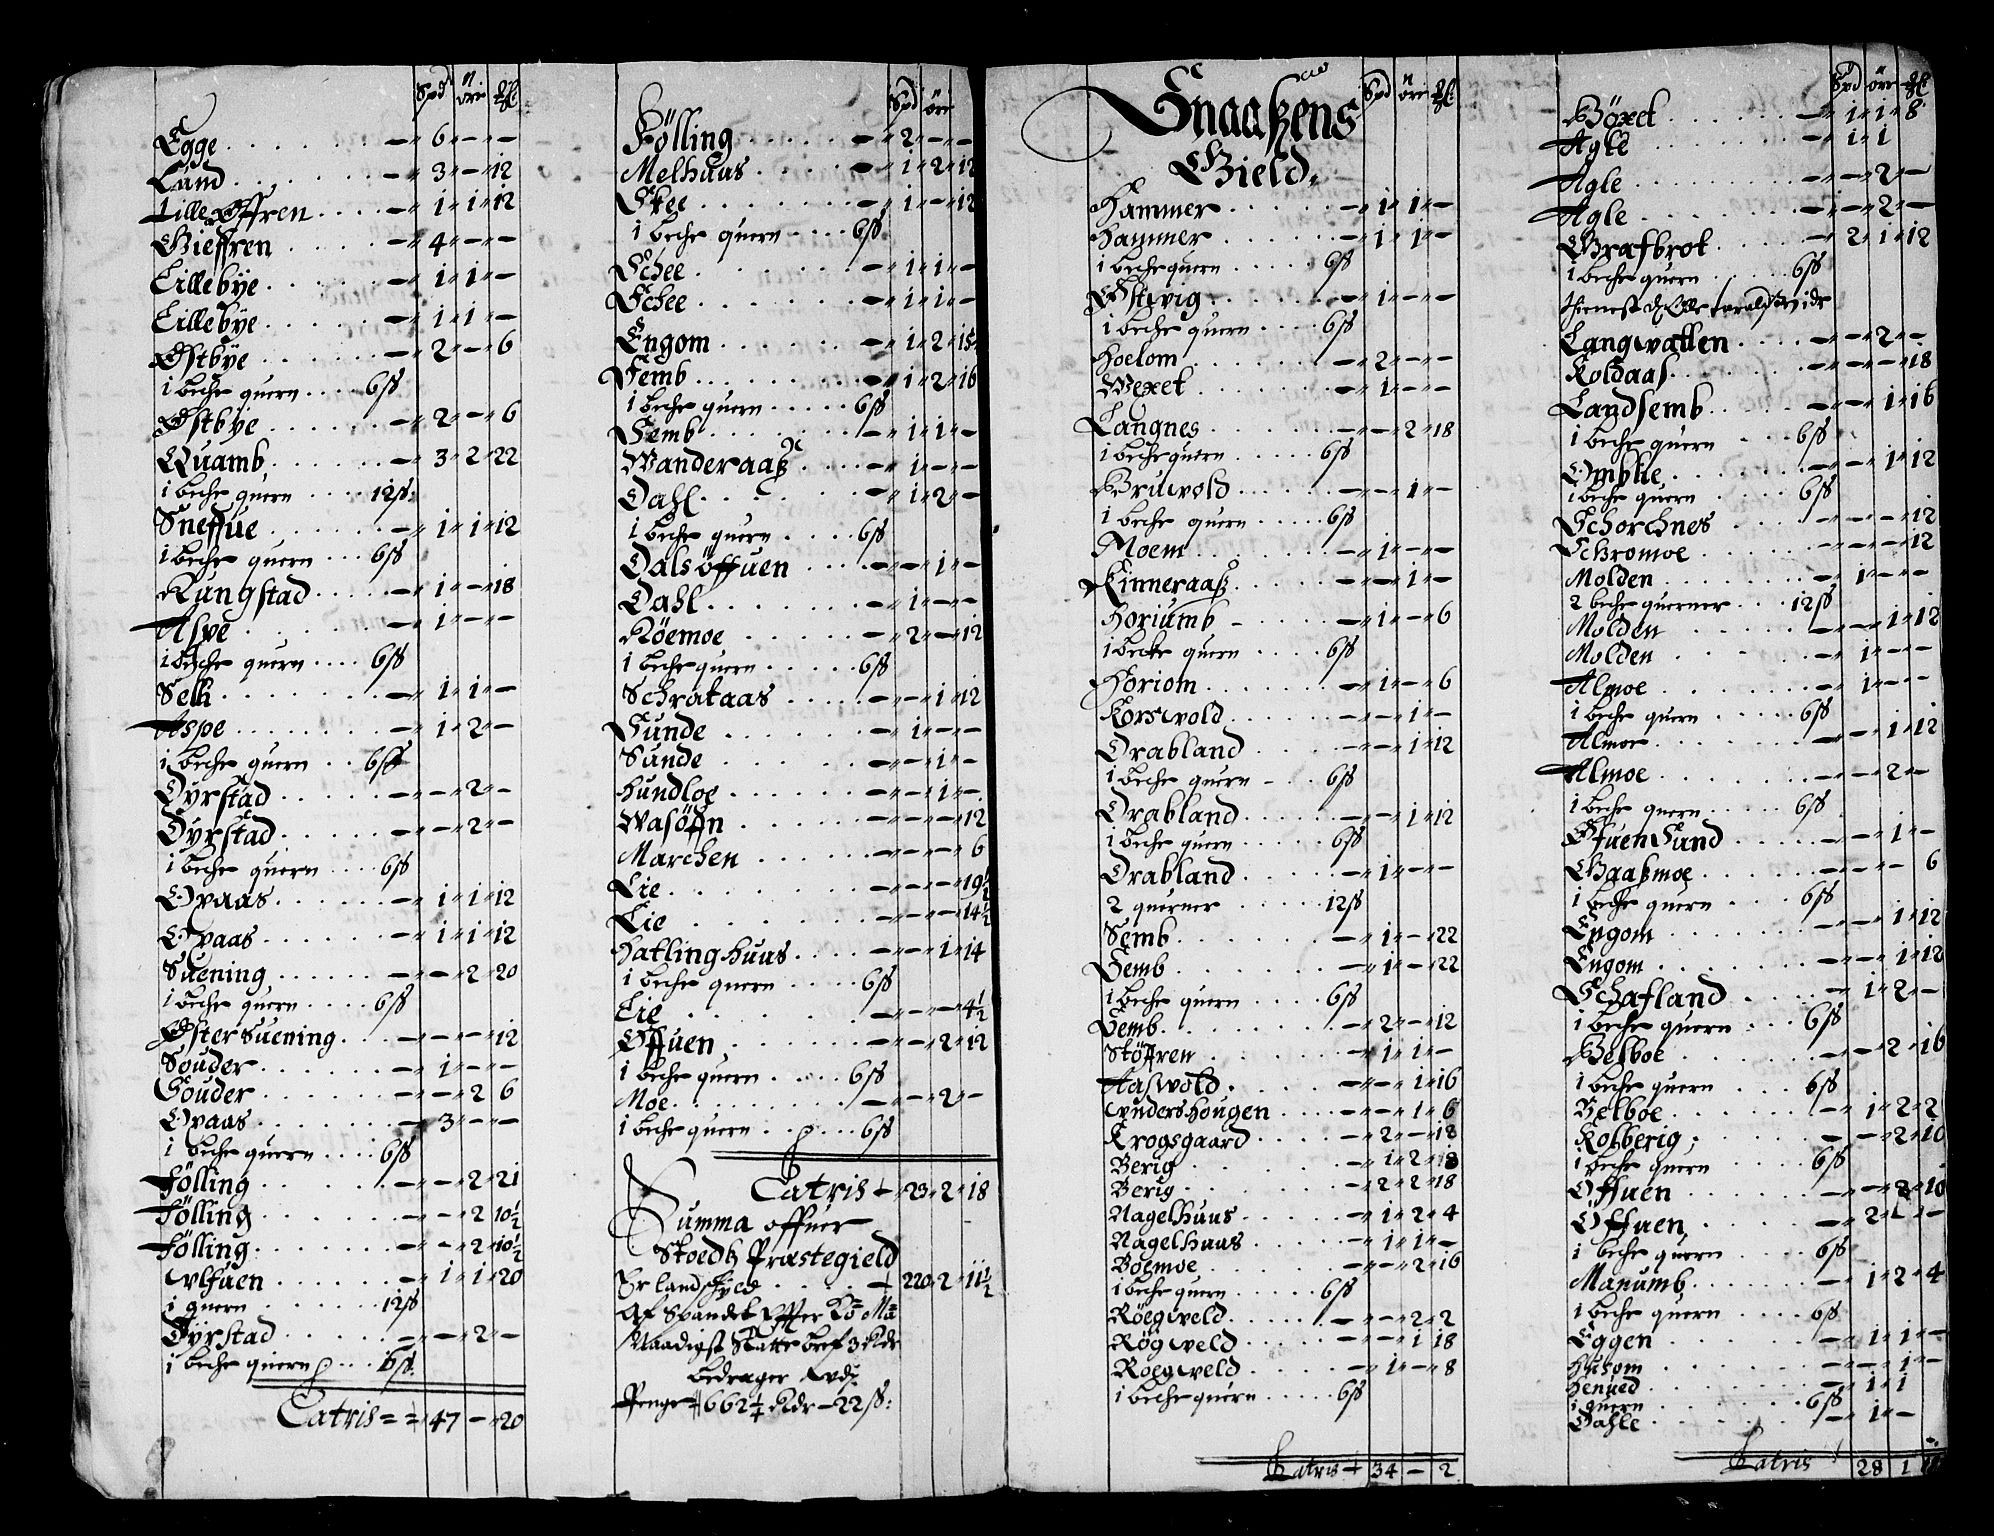 Spd ört ₰
Egge — 6 — —
Lund — 3 — 12
Lille Öffren — 1 1 12
Gieffren — 4 — —
Lillebÿe — 1 1 —
Lillebÿe — 1 1 —
Østbÿe — 2 — 6
1 beche quern 6 ß
Østbÿe — 2 — 6
Quamb — 3 2 22
1 beche quern 12 ß
Sneffue — 1 1 12
1 beche quern 6 ß
Rungstad — 1 — 18
Aspe — 1 — —
1 beche quern 6 ß
Selli — 1 1 —
Aspe — 1 2 —
1 beche quern 6 ß
Dÿrstad — — 2 —
Dÿrstad — — 2 —
1 beche quern 6 ß
Opaas — 1 1 12
Opaas — 1 1 12
Suening — — 2 20
1 beche quern 6 ß
Øster Suening — — — 12
Souder — 1 — —
Souder — — 2 6
Opaas — 3 — —
1 beche quern 6 ß
Fölling — — 2 21
Fölling — — 2 10½
Fölling — — 2 10½
Vlfuen — 1 1 20
1 quern 12 ß
Dÿrstad — — 2 —
1 beche quern 6 ß
Latris 47 — 20
Spd ört
Fölling — 2 — —
Melhuus — 1 2 12
Skee — 1 — 12
1 beche quern 6 ß
Schee — 1 1 —
Schee — 1 1 —
Engom — 1 2 15
Semb — 1 2 16
1 beche quern 6 ß
Semb — 1 1 —
Wanderaaß — 1 — —
Dahl — 1 2 —
1 beche quern 6 ß
Dalsöffuen — — 1 —
Dahl — 1 — —
Röemoe — 2 — 12
1 beche quern 6 ß
Schrataas — — 1 12
Sunde — 1 — —
Sunde — — 1 —
Hundloe — — 1 —
Wasöffn — — — 12
Marchen — — — 6
Lie — — — 19½
Lie — — — 14½
Hatlinghuus — — 1 14
1 beche quern 6 ß
Lie — — — 4½
Offuen — — 2 12
1 beche quern 6 ß
Moe — — 2 —
1 beche quern 6 ß
Latris 23 2 18
Summa offuer
Stoedß Præstegield
Er landschyld 220 2 11½
Af Spandet Effter Ko: Ma:
Naadigst Skatte bref 3 Rdr
bedrager
Penge 662¼ Rdr 22 ß
Snaaßens
Gield
Spd ört ₰
Hammer — 1 1 —
Hammer — 1 1 —
1 beche quern 6 ß
Østvig — 1 — —
1 beche quern 6 ß
Hoelom — 2 — —
Wexet — 1 — —
Langnes — — 2 18
1 beche quern 6 ß
Gruvold — — 1 —
1 beche quern 6 ß
Moem — 1 — —
Finneraaß — — 1 —
Horiumb — 1 — 6
1 becke quern 6 ß
Horiom — 1 — 6
Korswold — — 1 —
Grabland — — 1 12
1 beche quern 6 ß
Grabland — — 1 12
1 beche quern 6 ß
Grabland — 1 — —
2 querner 12 ß
Semb — 1 — 22
Semb — 1 — 22
1 beche quern 6 ß
Semb — 2 — 12
Stöffren — 1 1 —
Aaswold — — 1 16
Vndershougen — — 1 6
Krogsgaard — 2 — 18
Berig — 1 2 18
Berig — 2 2 18
Nagelhuus — 1 2 4
Nagelhuus — 1 1 —
Böemoe — — 2 16
1 beche quern 6 ß
Röegveld — — 2 2
Rögveld — — 1 18
Röegveld — 1 — 8
1 beche quern 6 ß
Latris 34 — 2
Spd ört ₰
Böxet — 1 1 8
Agle — 1 1
Agle — — 2 —
Agle — — 2 —
Grafbrot — 2 1 12
1 beche quern 6 ß
Langvatten — — 2 —
Koldaas — — — 18
Landsemb — — 1 16
1 beche quern 6 ß
Omblie — — 1 12
1 beche quern 6 ß
Schorchnes — — — 12
Schromoe — — — 12
Molden — 1 — —
2 beche querner 12 ß
Molden — — 1 12
Molden — 1 — —
Almoe — 1 — —
1 beche quern 6 ß
Almoe — — 1 12
Almoe — — 2 —
1 beche quern 6 ß
Ofuensund — — 1 —
Gaaßmoe — — — 6
1 beche quern 6 ß
Engom — — 1 12
Engom — — 1 12
Schafland — 1 2 —
1 beche quern 6 ß
Belboe — — 2 16
1 beche quern 6 ß
Belboe — 1 2 2
Kolberig — — 2 10
1 beche quern 6 ß
Offuen — — 2 10
Offuen — 2 — 1 —
1 beche quern 6 ß
Manumb — 1 2 4
1 beche quern 6 ß
Eggen — 1 1 —
Husom — — 1 —
Henued — 1 1
1 quern 6 ß
Dahle — 1 —
Latris 28 1